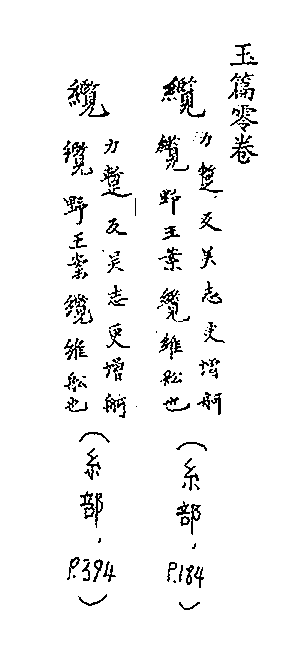 玉篇零卷
纜
力蹔反吳志更增舸
纜野王案纜維舩也
(糸部,P.184)
纜
力蹔反吳志更增舸
纜野王案纜維舩也
(糸部,P.394)